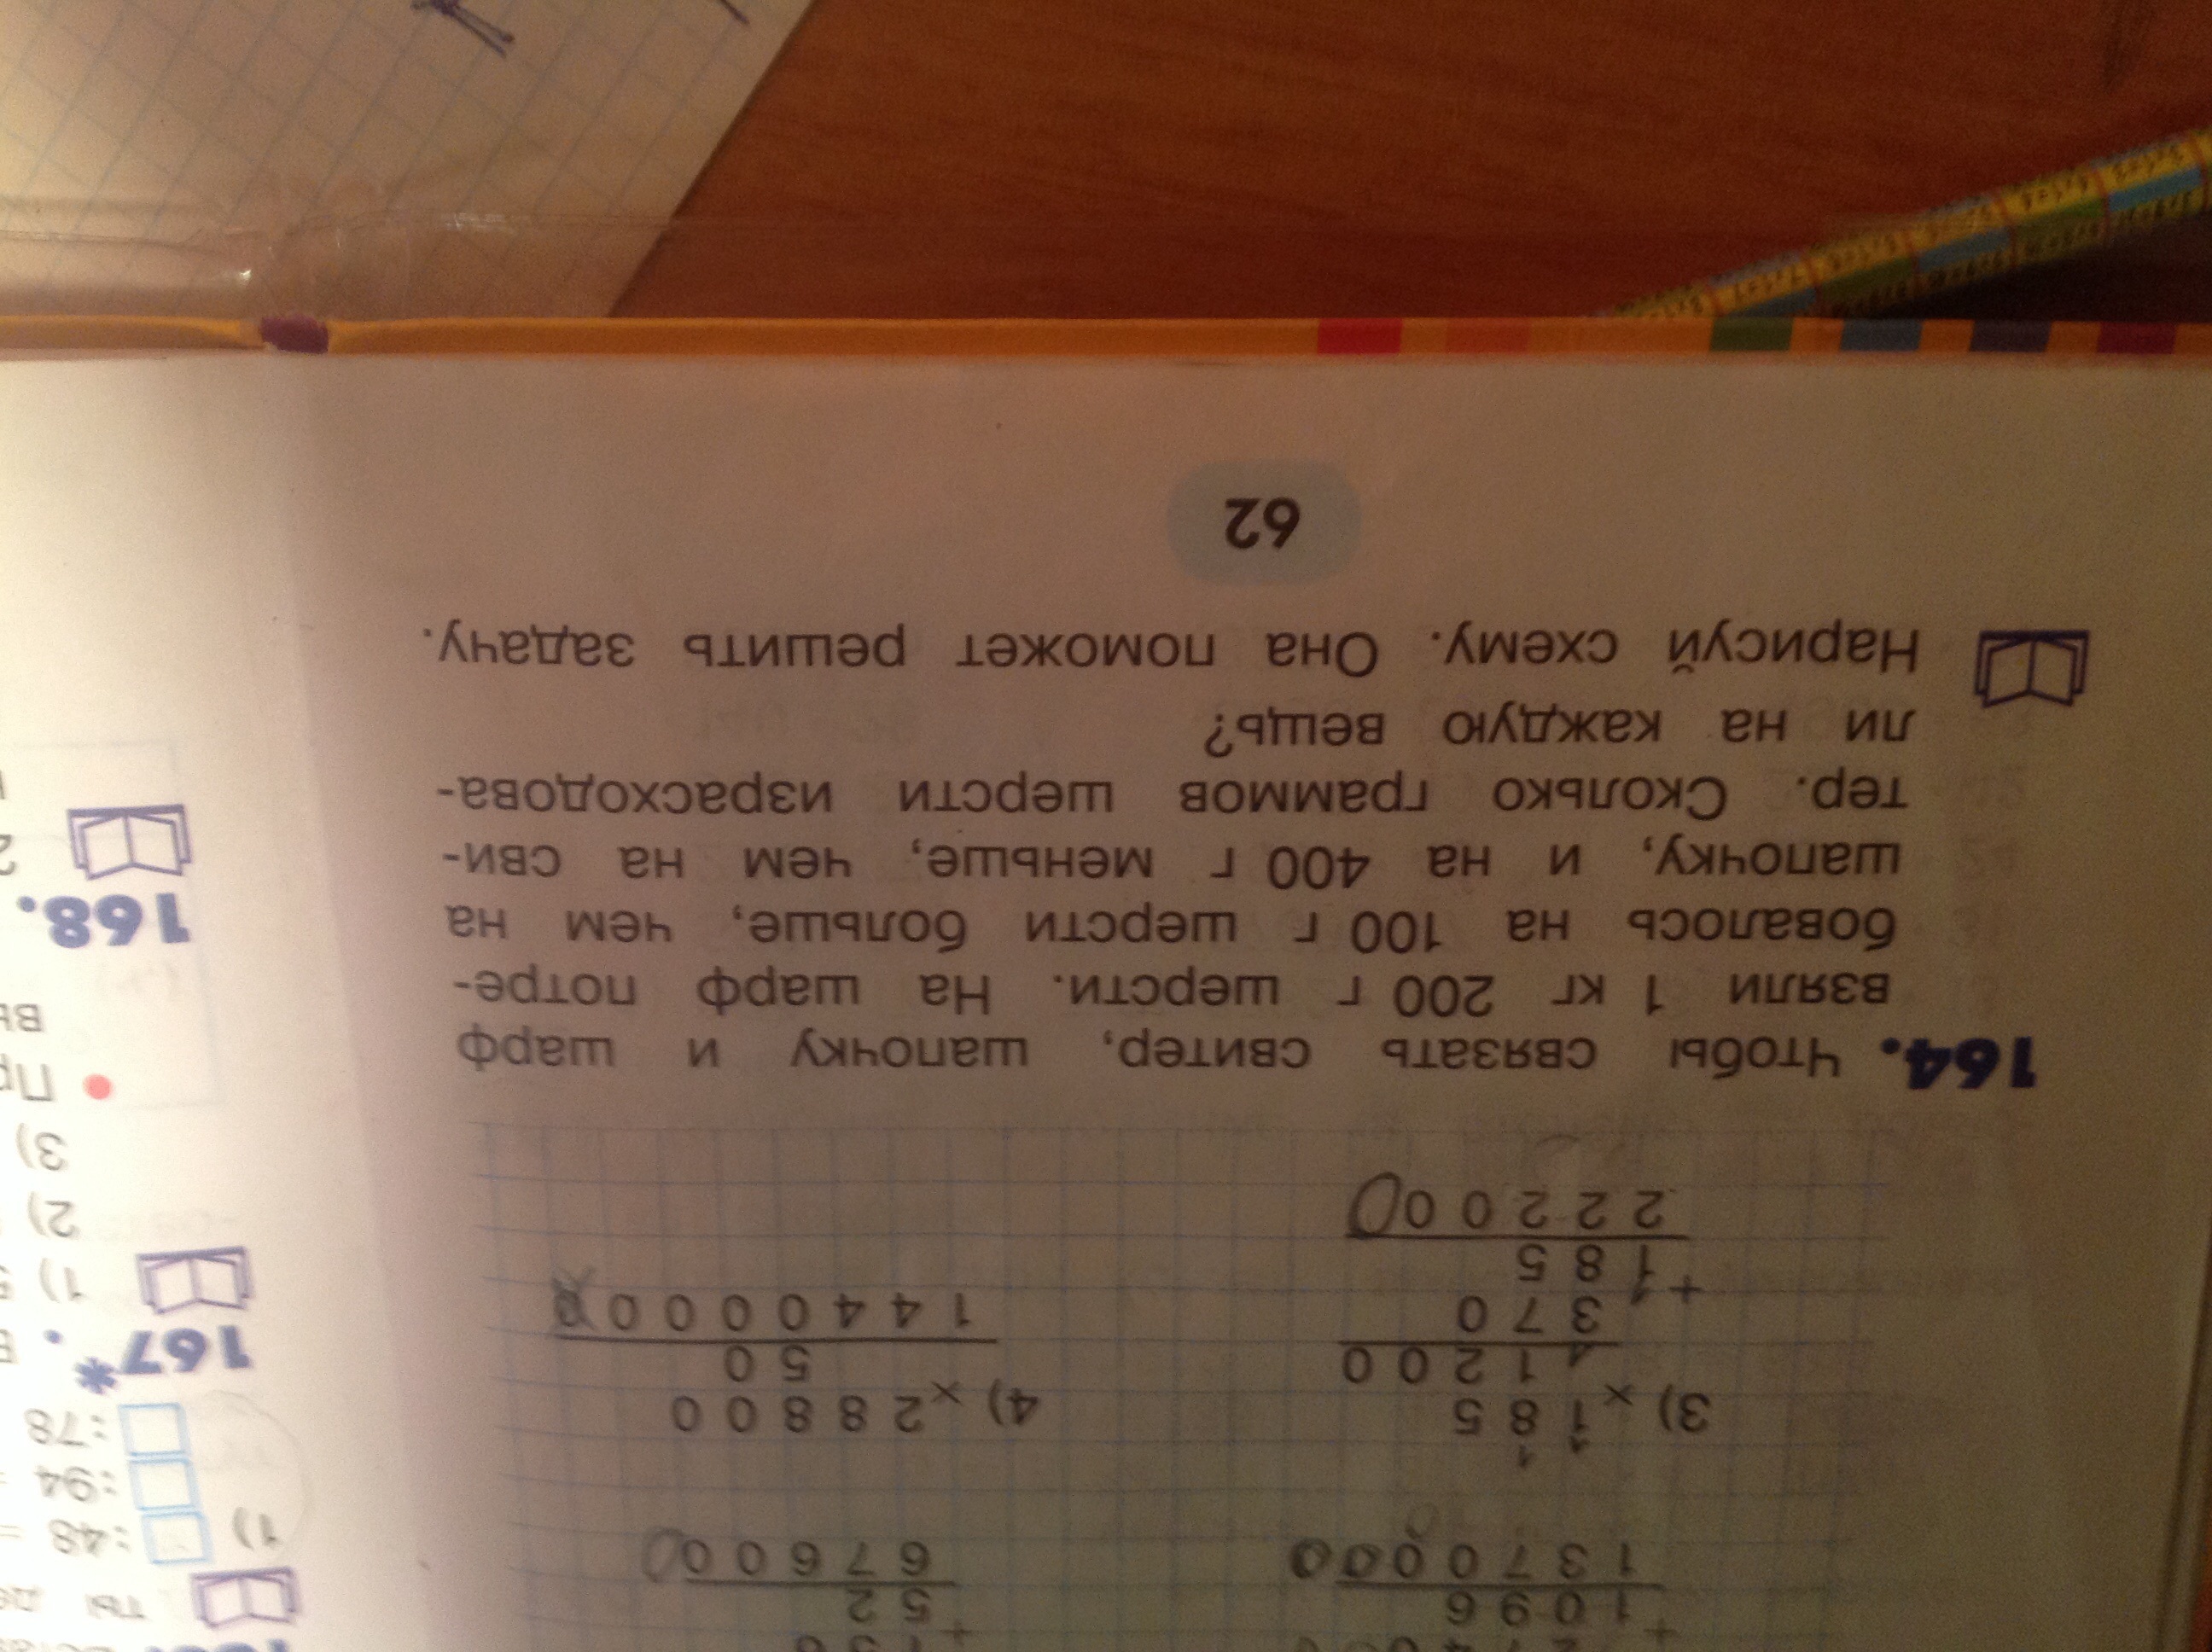 1 0 9 6
1 3 7 0 0 0 0
5 2
6 7 6 0 0 0
3) × 1 8 5
1 2 0 0
3 7 0
+ 1 8 5
2 2 2 0 0 0
4) × 2 8 8 0 0
5 0
1 4 4 0 0 0 0
164. Чтобы связать свитер, шапочку и шарф
взяли 1 кг 200 г шерсти. На шарф потре-
бовалось на 100 г шерсти больше, чем на
шапочку, и на 400 г меньше, чем на сви-
тер. Сколько граммов шерсти израсходова-
ли на каждую вещь?
Нарисуй схему. Она поможет решить задачу.
62
ты
1) :48 =
:94
:78
167*.
1)
2)
3)
168.